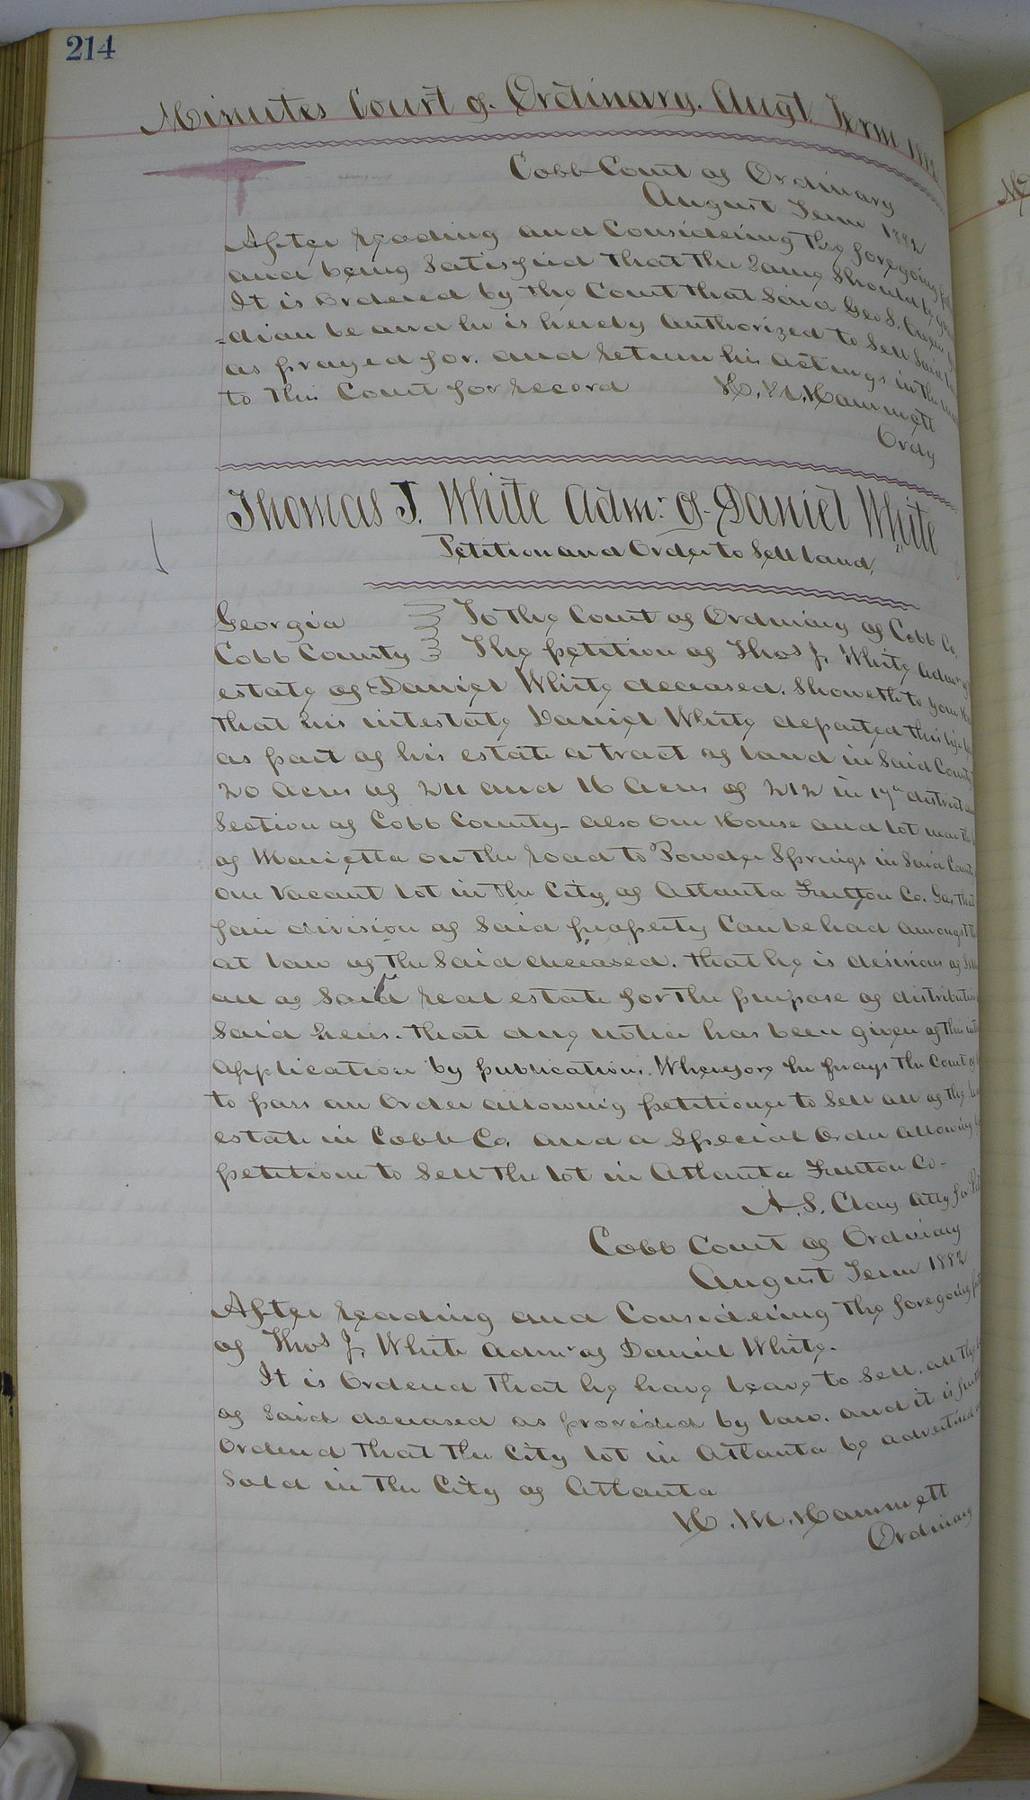 214
Minutes Court of Ordinary. Augt. Term
Cobb Court of Ordinary
August Term 1882
After reading and Considering the foregoing
and being Satisfied that the Same Should be
It is Ordered by the Court that Said Geo S.
-dian be and he is hereby Authorized to Sell Said
as prayed for. and return his actings in the
to this Court for record H. M. Hammett
Ordy
Thomas J. White Adm: of Daniel White
Petition and Order to Sell Land
Georgia To the Court of Ordinary of Cobb Co.
Cobb County The petition of Thos J. White Admr of
estate of Daniel White deceased. Showeth to your
that his intestate Daniel White departed this life
as part of his estate a tract of land in Said County
20 Acres of 211 and 16 Acres of 212 in 19th district
Section of Cobb County - also One House and Lot near the
of Marietta on the road to Powder Springs in Said County
one Vacant lot in the City of Atlanta Fulton Co. Ga. That
fair division of Said property Can be had amongst the
at law of the Said deceased. that he is desirous of
all of Said real estate for the purpose of distribution
Said heirs. that due notice has been given of this
Application by publication. Wherefore he prays the Court
to pass an Order allowing petitioner to Sell all of the
estate in Cobb Co. and a Special Order allowing
petitioner to Sell the lot in Atlanta Fulton Co-
A. S. Clay atty for
Cobb Court of Ordinary
August Term 1882
After reading and Considering the foregoing
of Thos J. White Admr of Daniel White.
It is Ordered that he have leave to Sell. all the
of Said deceased as provided by law. and it is
Ordered that the City lot in Atlanta be advertised
Sold in the City of Atlanta
H. M. Hammett
Ordinary